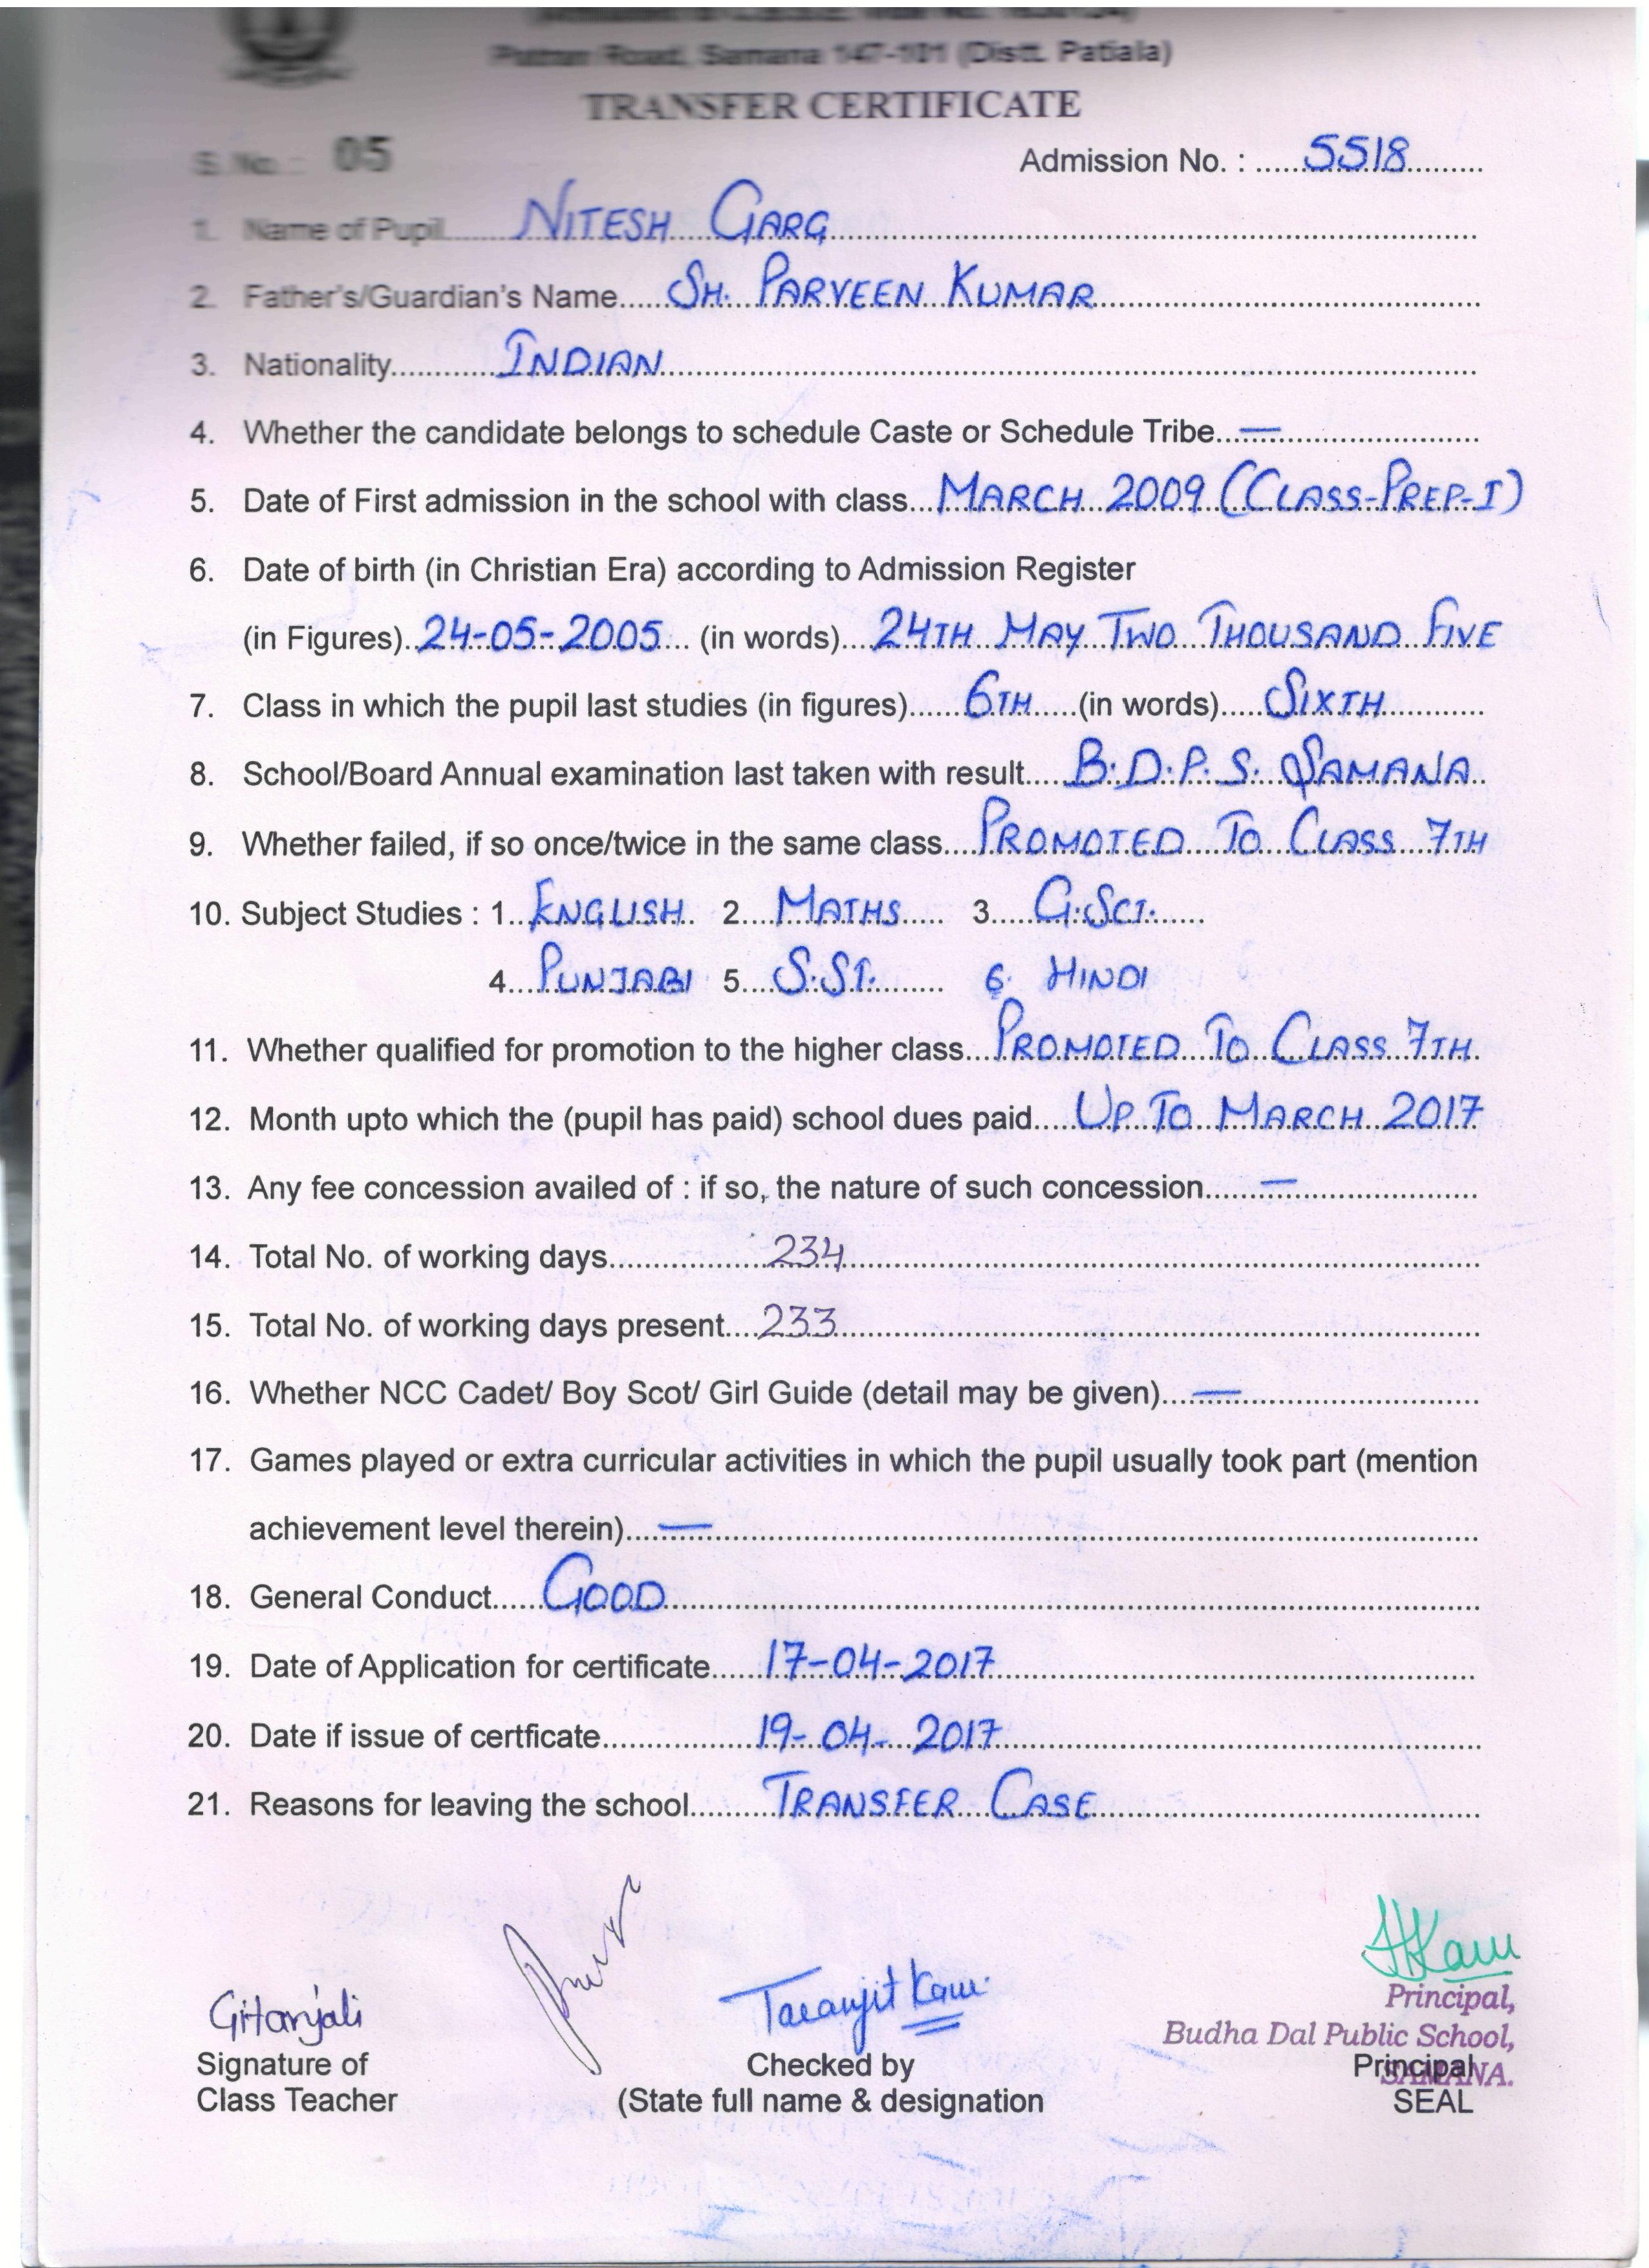 Road, Samana 147-101 (Distt. Patiala)
TRANSFER CERTIFICATE
S. No. : 05 Admission No. : ......5518..........
1. Name of Pupil......NITESH GARG..........
2. Father's/Guardian's Name.....SH. PARVEEN KUMAR..........
3. Nationality...........INDIAN..........
4. Whether the candidate belongs to schedule Caste or Schedule Tribe...—..........
5. Date of First admission in the school with class...MARCH 2009 (CLASS-PREP-I)
6. Date of birth (in Christian Era) according to Admission Register
(in Figures)..24-05-2005... (in words)....24TH MAY TWO THOUSAND FIVE
7. Class in which the pupil last studies (in figures)......6TH.....(in words).....SIXTH..........
8. School/Board Annual examination last taken with result.....B.D.P.S. SAMANA..
9. Whether failed, if so once/twice in the same class....PROMOTED TO CLASS 7TH
10. Subject Studies : 1..ENGLISH.. 2....MATHS..... 3.....G.SCI.......
4...PUNJABI 5....S.ST......... 6. HINDI
11. Whether qualified for promotion to the higher class...PROMOTED TO CLASS 7TH.
12. Month upto which the (pupil has paid) school dues paid....UP TO MARCH 2017
13. Any fee concession availed of : if so, the nature of such concession......—..........
14. Total No. of working days..........234..........
15. Total No. of working days present....233..........
16. Whether NCC Cadet/ Boy Scot/ Girl Guide (detail may be given)...—..........
17. Games played or extra curricular activities in which the pupil usually took part (mention
achievement level therein)....—..........
18. General Conduct.....GOOD..........
19. Date of Application for certificate.....17-04-2017..........
20. Date if issue of certficate..........19-04-2017..........
21. Reasons for leaving the school........TRANSFER CASE..........
Gitanjali Taranjit Kaur Kaur
Principal,
Budha Dal Public School,
SAMANA.
Signature of Checked by Principal
Class Teacher (State full name & designation SEAL